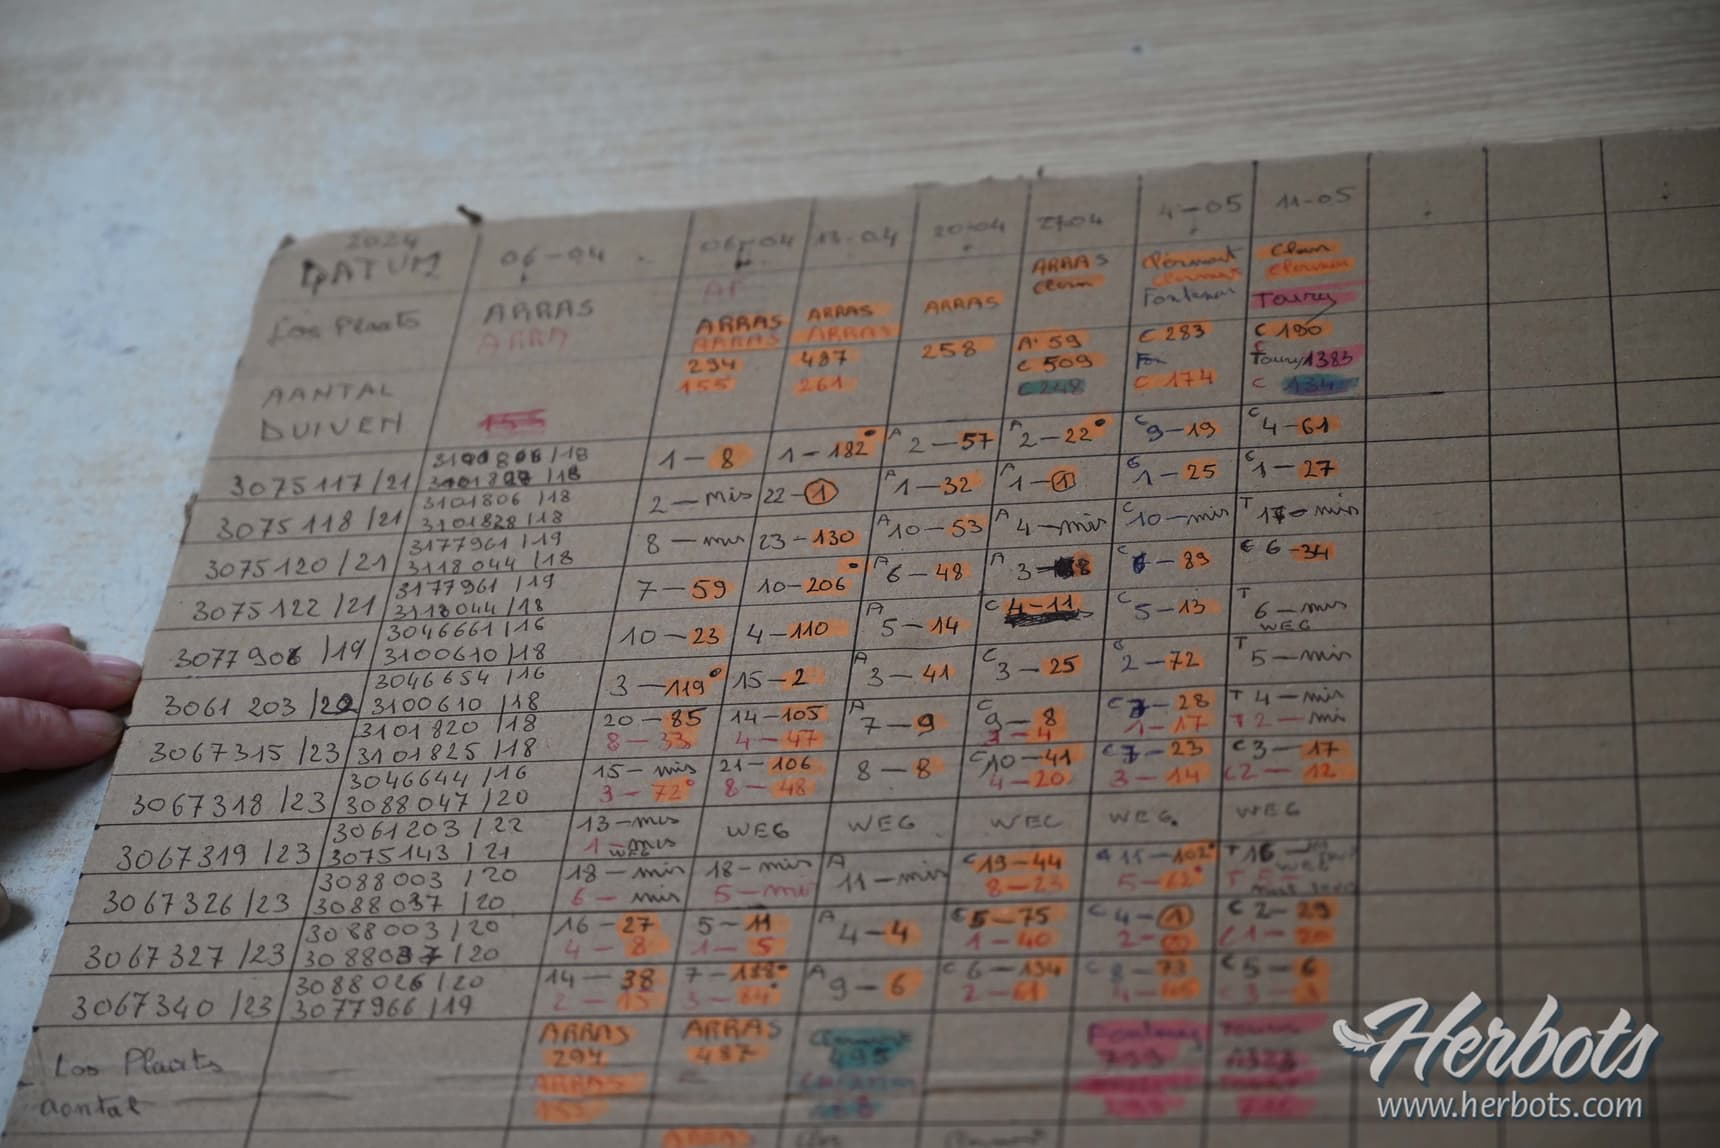 2024
DATUM 06-04 06-04 13-04 20-04 27-04 4-05 11-05
Los Plaats ARRAS ARRAS ARRAS ARRAS ARRAS Clermont Clerm
ARRA ARRAS ARRAS Clerm Clermont Clermon
Fontenay Toury
AANTAL 294 487 258 A 59 C 283 C 190
DUIVEN 155 155 261 C 509 Toury 1383
C 248 C 174 C 134
3075117/21 1-8 1-182 A 2-57 A 2-22 C 9-19 C 4-61
3075118/21 3101806/18 2-mis 22-1 A 1-32 A 1-1 C 1-25 C 1-27
3101828/18
3075120/21 3177961/19 8-mis 23-130 A 10-53 A 4-mis C 10-mis T 17-mis
3118044/18
3075122/21 3177961/19 7-59 10-206 A 6-48 A 3- C -89 C 6-34
3118044/18
3077906/19 3046661/16 10-23 4-110 A 5-14 C 4-11 C 5-13 T 6-mis
3100610/18 WEG
3061203/22 3046654/16 3-119 15-2 A 3-41 C 3-25 C 2-72 T 5-mis
3100610/18
3067315/23 3101820/18 20-85 14-105 A 7-9 C 9-8 C 7-28 T 4-mis
3101825/18 8-33 4-47 3-4 1-17 T 2-mi
3067318/23 3046644/16 15-mis 21-106 8-8 C 10-41 C 7-23 C 3-17
3088047/20 3-72 8-48 4-20 3-14 C 2-12
3067319/23 3061203/22 13-mis WEG WEG WEG WEG WEG
3075143/21 1-mis
WEG
3067326/23 3088003/20 18-mis 18-mis A 11-mis C 19-44 11-102 T 16
3088037/20 6-mis 5-mis 8-23 5-62
3067327/23 3088003/20 16-27 5-11 A 4-4 C 5-75 C 4-1 C 2-29
3088037/20 4-8 1-5 1-40 2-1 C 1-20
3067340/23 3088026/20 14-38 7-138 A 9-6 C 6-134 C 8-73 C 5-6
3077966/19 2-15 3-84 2-61
Los Plaats ARRAS ARRAS Fontenay
294 487 495 799
aantal ARRAS
ARRAS
Herbots
www.herbots.com